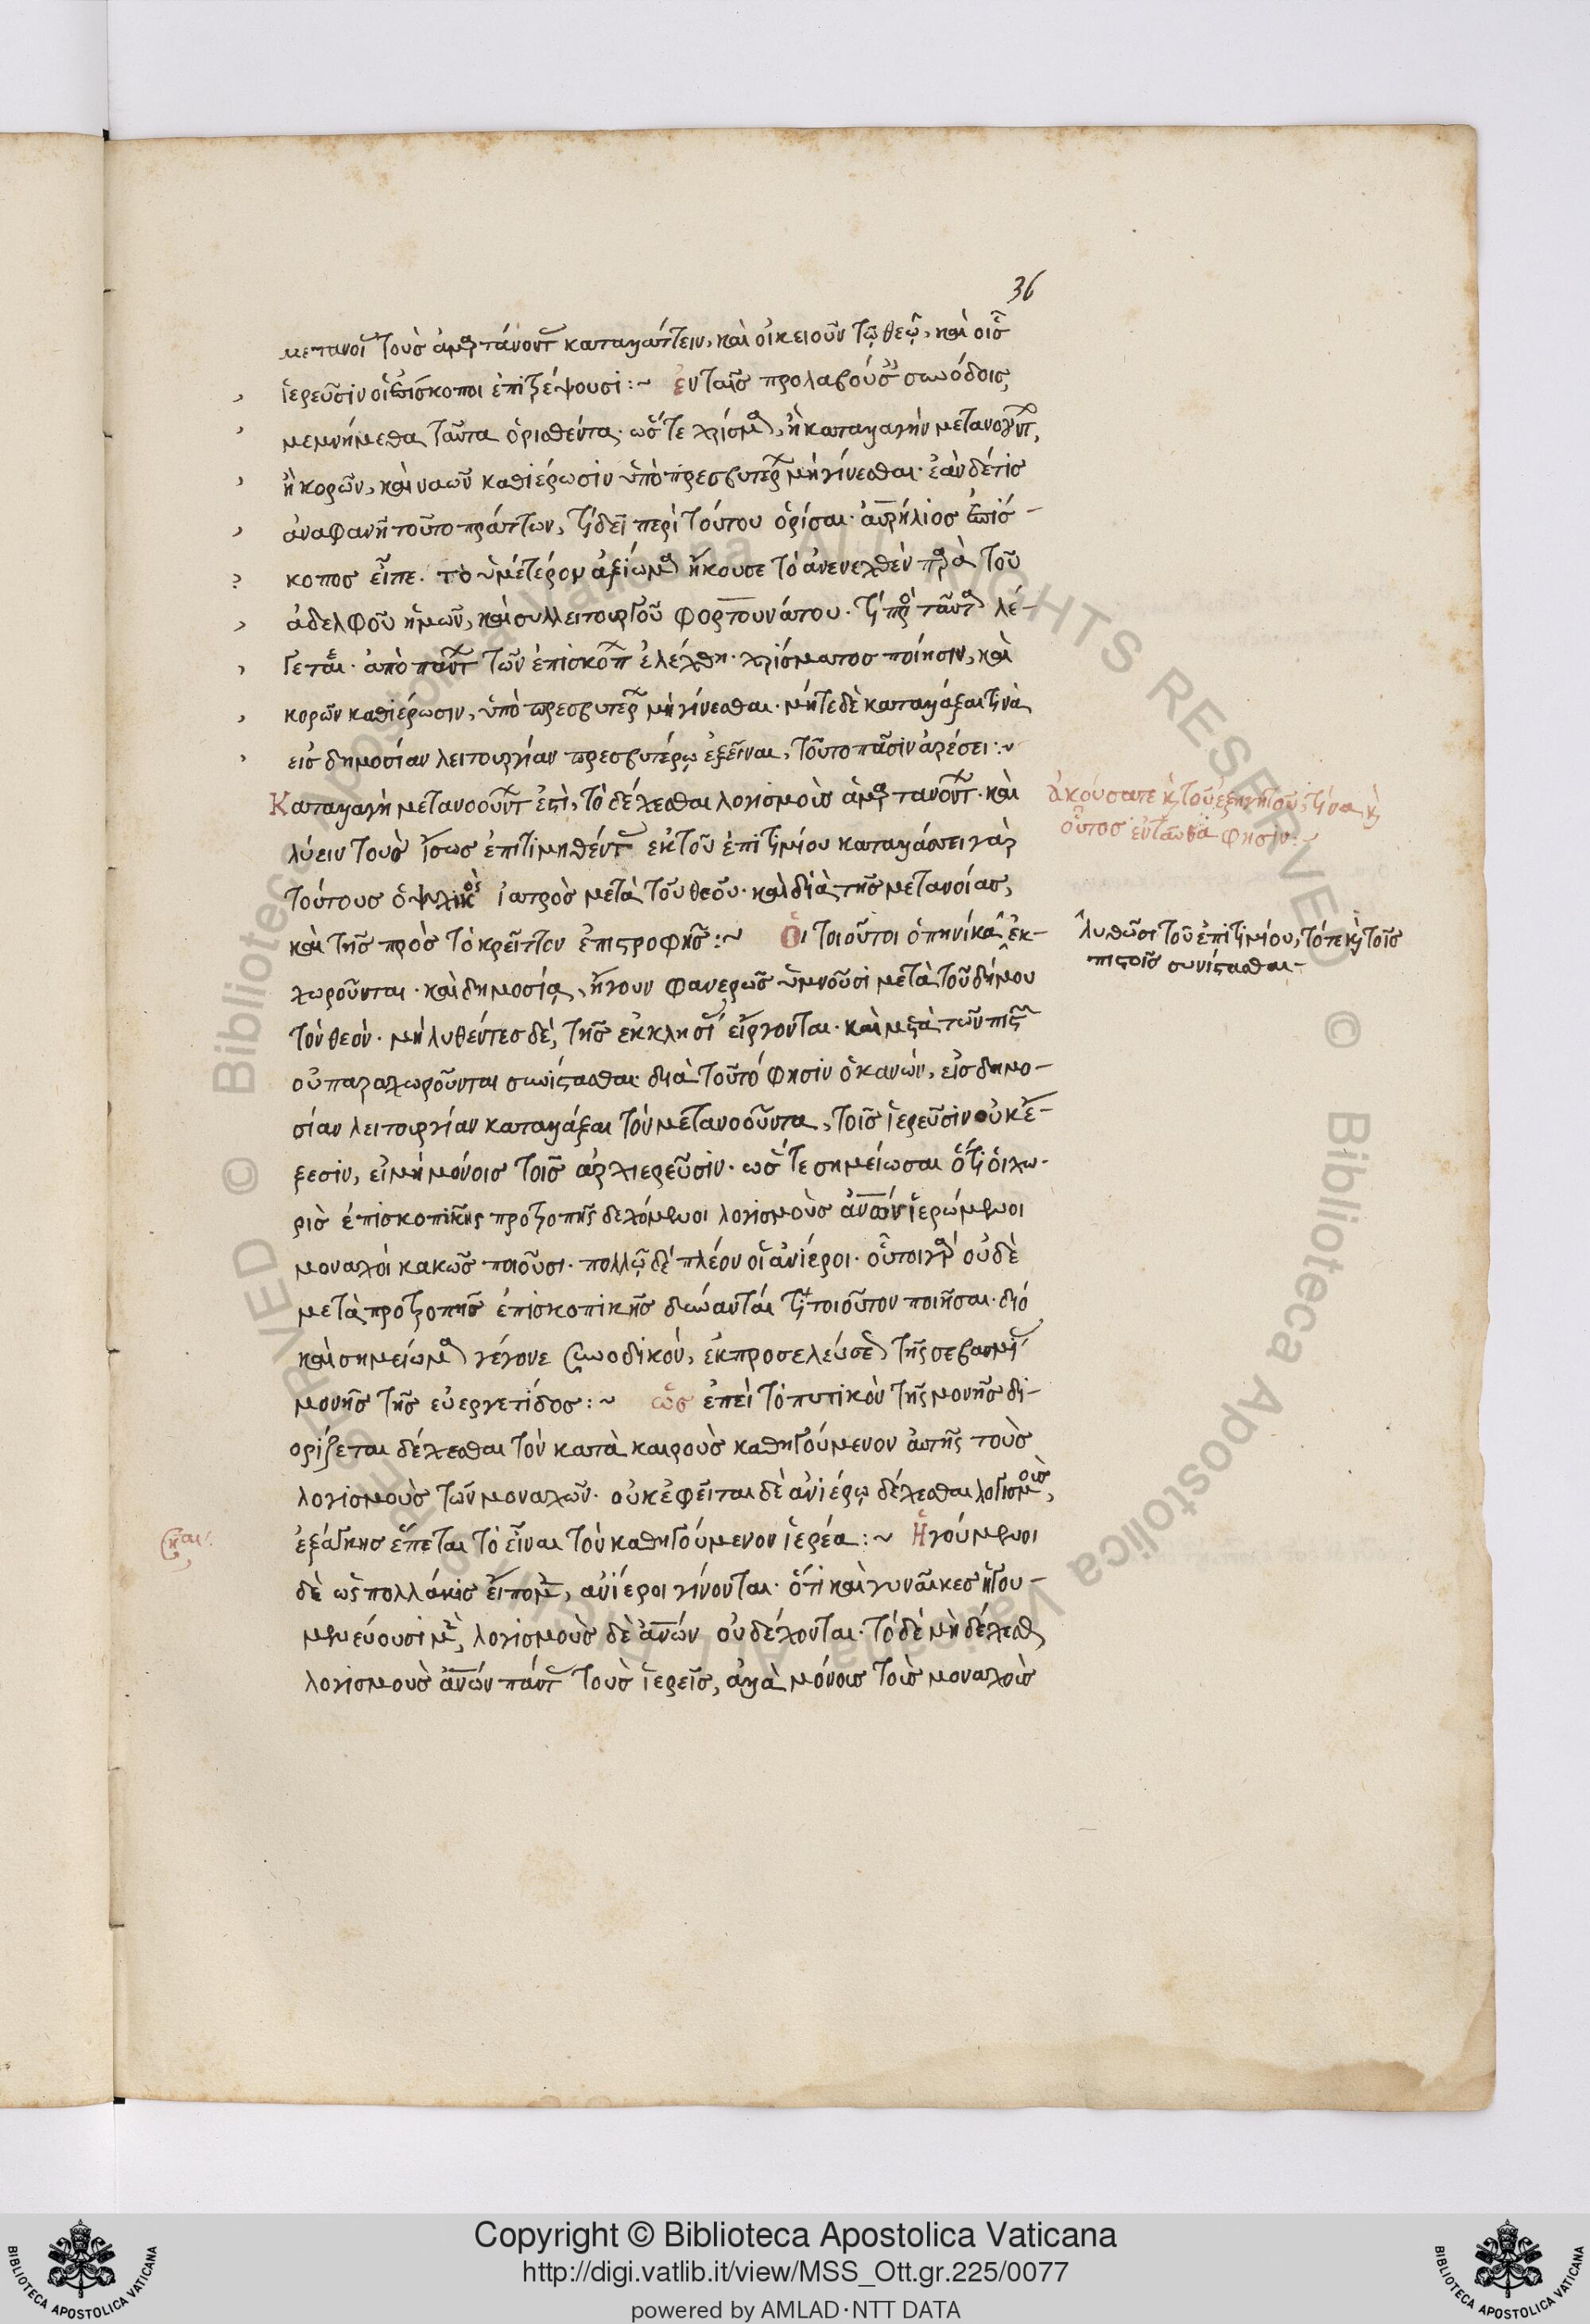 36
μετανοί τοὺς ἁμαρτάνοντ καταλλάττειν, καὶ οἰκειοῦν τῷ θεῷ, καὶ οἷς
ἱερεῦσιν οἱ ἐπίσκοποι ἐπιτρέψουσι :~ ἐν ταῖς προλαβούσ συνόδοις,
μεμνήμεθα ταῦτα ὁρισθέντα· ὥστε χρίσμα, ἢ καταλλαγὴν μετανοούντ,
ἢ κορῶν, καὶ ναῶν καθιέρωσιν ὑπὸ πρεσβυτέρ μὴ γίνεσθαι· ἐὰν δέ τις
ἀναφανῇ τοῦτο πράττων, τί δεῖ περὶ τούτου ὁρίσαι· αὐρήλιος ἐπίσ-
κοπος εἶπε. τὸ ὑμέτερον ἀξίωμα ἤκουσε τὸ ἀνενεχθὲν παρὰ τοῦ
ἀδελφοῦ ἡμῶν, καὶ συλλειτουργοῦ φορτουνάτου. τί πρὸς ταῦτα λέ-
γεται· ἀπὸ πάντ τῶν ἐπισκόπ ἐλέχθη· χρίσματος ποίησιν, καὶ
κορῶν καθιέρωσιν, ὑπὸ πρεσβυτέρ μὴ γίνεσθαι· μήτε δὲ καταλλάξαι τινὰ
εἰς δημοσίαν λειτουργίαν πρεσβυτέρῳ ἐξεῖναι, τοῦτο πᾶσιν ἀρέσει :~
Καταλλαγὴ μετανοούντ ἐστὶ, τὸ δέχεσθαι λογισμοὺς ἁμαρτανόντ· καὶ
λύειν τοὺς ἴσως ἐπιτιμηθέντ ἐκ τοῦ ἐπιτιμίου καταλλάσσει γὰρ
τούτους ὁ ψυχικὸς ἰατρὸς μετὰ τοῦ θεοῦ· καὶ διὰ τῆς μετανοίας,
καὶ τῆς πρὸς τὸ κρεῖττον ἐπιστροφῆς :~ Οἱ τοιοῦτοι ὁπηνίκα ἐκ-
χωροῦνται· καὶ δημοσίᾳ, ἤγουν φανερῶς ὑμνοῦσι μετὰ τοῦ δήμου
τὸν θεόν· μὴ λυθέντες δὲ, τῆς ἐκκλησί εἴργονται· καὶ μετὰ τῶν πιστ
οὐ παραχωροῦνται συνίστασθαι· διὰ τοῦτό φησιν ὁ κανών, εἰς δημο-
σίαν λειτουργίαν καταλλάξαι τὸν μετανοοῦντα, τοῖς ἱερεῦσιν οὐκ ἔ-
ξεσιν, εἰ μὴ μόνοις τοῖς ἀρχιερεῦσιν· ὥστε σημείωσαι ὅτι οἱ χω-
ρὶς ἐπισκοπικῆς προτροπῆς δεχόμενοι λογισμοὺς ἀνων ἱερώμενοι
μοναχοὶ κακῶς ποιοῦσι· πολλῷ δὲ πλέον οἱ ἀνίεροι· οὗτοι γὰρ οὐδὲ
μετὰ προτροπῆς ἐπισκοπικῆς δύνανταί τι τοιοῦτον ποιῆσαι· διό
καὶ σημείωμα γέγονε συνοδικὸν, ἐκ προσελεύσε τῆς σεβασμί
μονῆς τῆς εὐεργετίδος :~ ὡς ἐπεὶ τὸ τυπικὸν τῆς μονῆς δι-
ορίζεται δέχεσθαι τὸν κατὰ καιροὺς καθηγούμενον αὐτῆς τοὺς
λογισμοὺς τῶν μοναχῶν· οὐκ ἐφεῖται δὲ ἀνιέρῳ δέχεσθαι λογισμοὺς,
ἐξάγκης ἕπεται τὸ εἶναι τὸν καθηγούμενον ἱερέα :~ Ἡγούμενοι
δὲ ὡς πολλάκις εἴπομεν, ἀνίεροι γίνονται· ὅτι καὶ γυναῖκες ἡγου-
μενεύουσι μὲν, λογισμοὺς δὲ ἀνων οὐ δέχονται. τὸ δὲ μὴ δέχεσθ
λογισμοὺς ἀνων πάντ τοὺς ἱερεῖς, ἀλλὰ μόνοις τοῖς μοναχοῖς
ἀκούσατε καὶ τοῦ ἐξηγητοῦ, τίνα καὶ
οὗτος ἐνταῦθα φησιν :~
λυθῶσι τοῦ ἐπιτιμίου, τότε καὶ τοῖς
πιστοῖς συνίστασθαι~
Copyright © Biblioteca Apostolica Vaticana
http://digi.vatlib.it/view/MSS_Ott.gr.225/0077
powered by AMLAD·NTT DATA